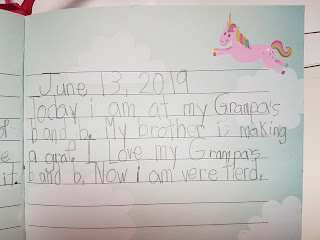 June 13, 2019
Today i am at my Grampa's
b and b. My brother is making
a graf. I Love my Grampa's
b and b. Now i am vere tierd.
it.